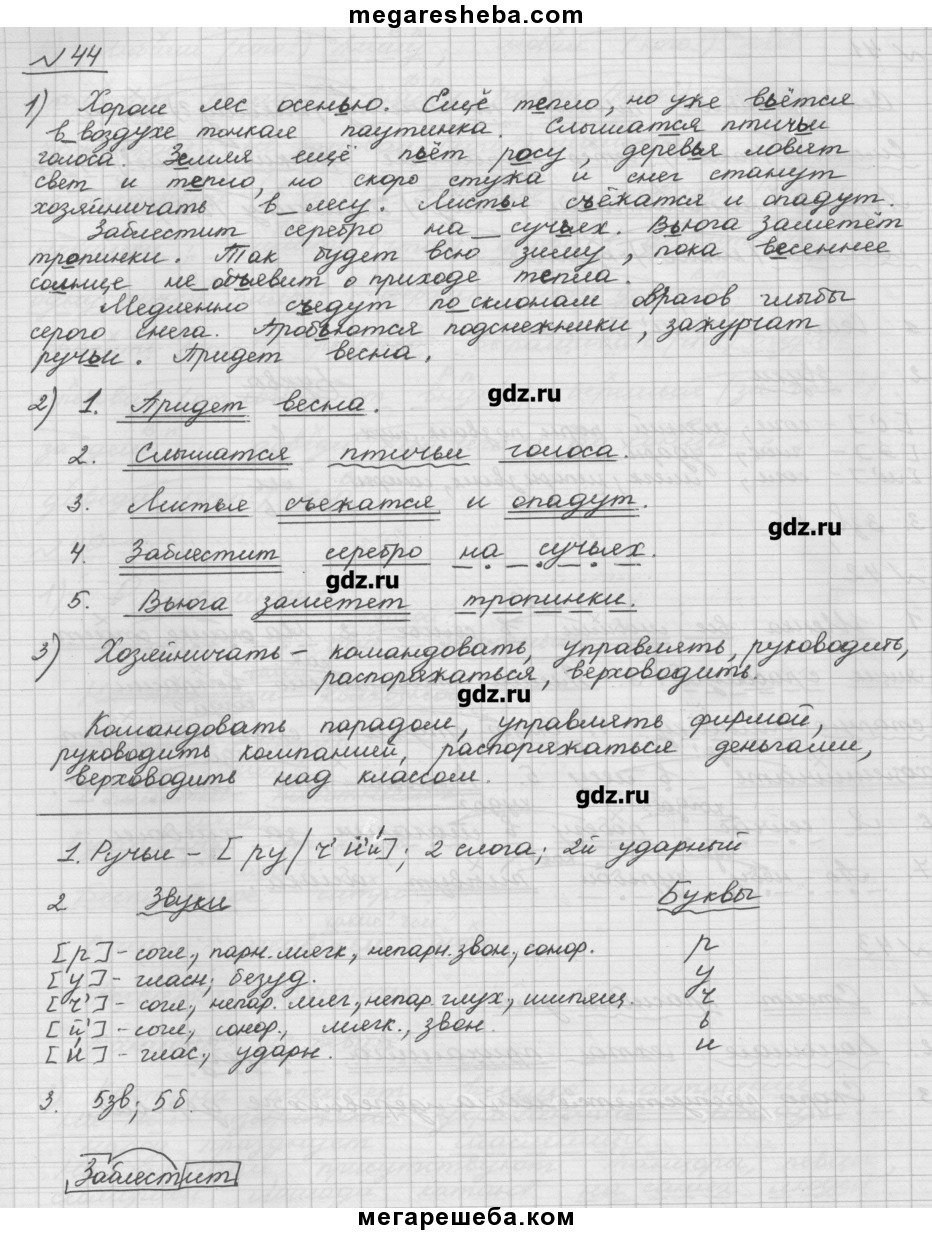 megaresheba.com
№ 44
1) Хорош лес осенью. Ещё тепло, но уже вьётся
в воздухе тонкая паутинка. Слышатся птичьи
голоса. Земля ещё пьёт росу, деревья ловят
свет и тепло, но скоро стужа и снег станут
хозяйничать в лесу. Листья съёжатся и опадут.
Заблестит серебро на сучьях. Вьюга заметёт
тропинки. Так будет всю зиму, пока весеннее
солнце не объявит о приходе тепла.
Медленно съедут по склонам оврагов глыбы
серого снега. Пробьются подснежники, зажурчат
ручьи. Придет весна.
2) 1. Придет весна.
gdz.ru
2. Слышатся птичьи голоса.
3. Листья съежатся и опадут.
gdz.ru
4. Заблестит серебро на сучьях.
gdz.ru
5. Вьюга заметет тропинки.
3) Хозяйничать – командовать, управлять, руководить,
распоряжаться, верховодить.
gdz.ru
Командовать парадом, управлять фирмой,
руководить компанией, распоряжаться деньгами,
верховодить над классом.
gdz.ru
1. Ручьи – [ру/ч'й'и́]; 2 слога; 2й ударный
2 Звуки Буквы
[р] – согл, парн. мягк, непарн. звон., сонор. р
[у] – гласн; безуд. у
[ч'] – согл, непар. мягк, непар. глух, шипящ. ч
[й'] – согл, сонор., мягк., звон. ь
[и́] – глас, ударн. и
3. 5зв; 5б.
Заблестит
мегарешеба.com